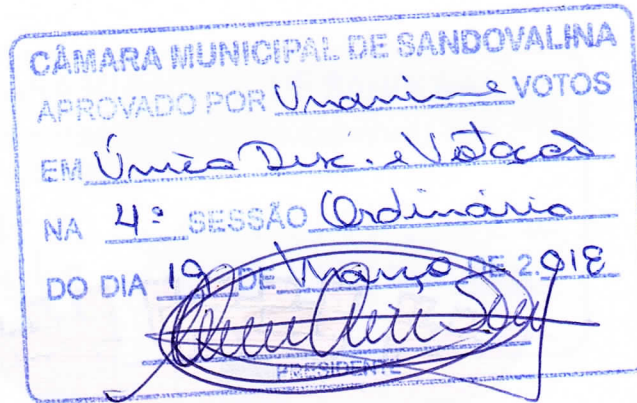 CÂMARA MUNICIPAL DE SANDOVALINA
APROVADO POR Unanime VOTOS
EM Única Disc. e Votação
NA 4ª SESSÃO Ordinária
DO DIA 19 DE Março DE 2.018
PRESIDENTE